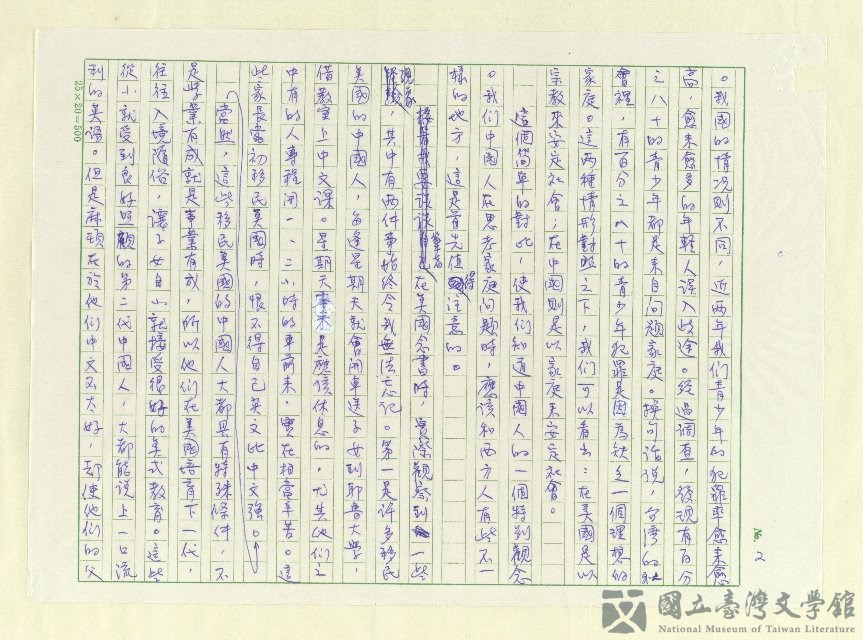 № 2
。我國的情況則不同，近兩年我們青少年的犯罪率愈來愈
高，愈來愈多的年輕人誤入歧途。經過調查，發現有百分
之八十的青少年都是來自問題家庭。換句話說，台灣的社
會裡，有百分之八十的青少年犯罪是因為缺乏一個理想的
家庭。這兩種情形對照之下，我們可以看出：在美國是以
宗教來安定社會；在中國則是以家庭來安定社會。
這個簡單的對比，使我們知道中國人的一個特別觀念
。我們中國人在思考家庭問題時，應該和西方人有些不一
樣的地方，這是首先值得注意的。
接着我要談談筆者在美國念書時，實際觀察到一些
現象，其中有兩件事始終令我無法忘記。第一是許多移民
美國的中國人，每逢星期天就會開車送子女到耶魯大學，
借教室上中文課。星期天本來是應該休息的，尤其他們之
中有的人專程開一、二小時的車前來，實在相當辛苦。這
些家長當初移民美國時，恨不得自己英文比中文強。
當然，這些移民美國的中國人大都具有特殊條件，不
是學業有成就是事業有成，所以他們在美國培育下一代，
往往入境隨俗，讓子女自小就接受很好的美式教育。這些
從小就受到良好照顧的第二代中國人，大都能說上一口流
利的英語。但是麻煩在於他們中文不太好，即使他們的父
25×20=500
國立臺灣文學館
National Museum of Taiwan Literature